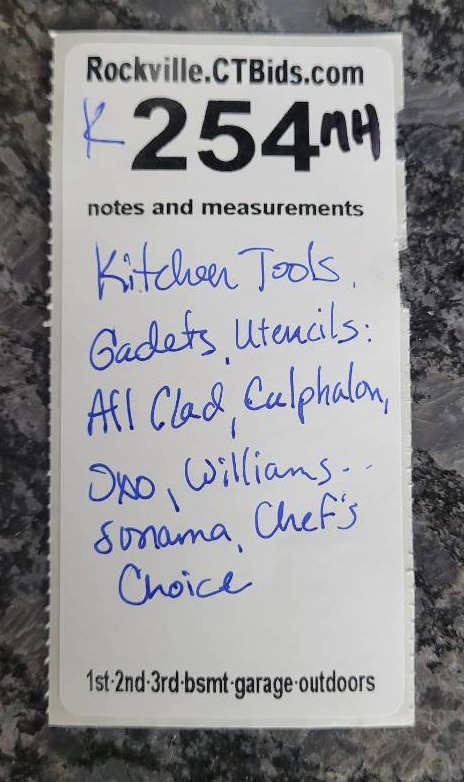 Rockville.CTBids.com
K 254 MH
notes and measurements
Kitchen Tools.
Gadets, Utencils:
All Clad, Calphalon,
Oxo, Williams--
Sonama, Chef's
Choice
1st-2nd-3rd-bsmt-garage-outdoors